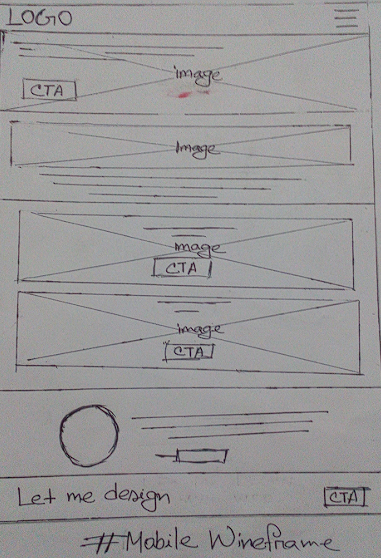 LOGO
image
CTA
Image
image
CTA
image
CTA
Let me design
CTA
#Mobile Wineframe